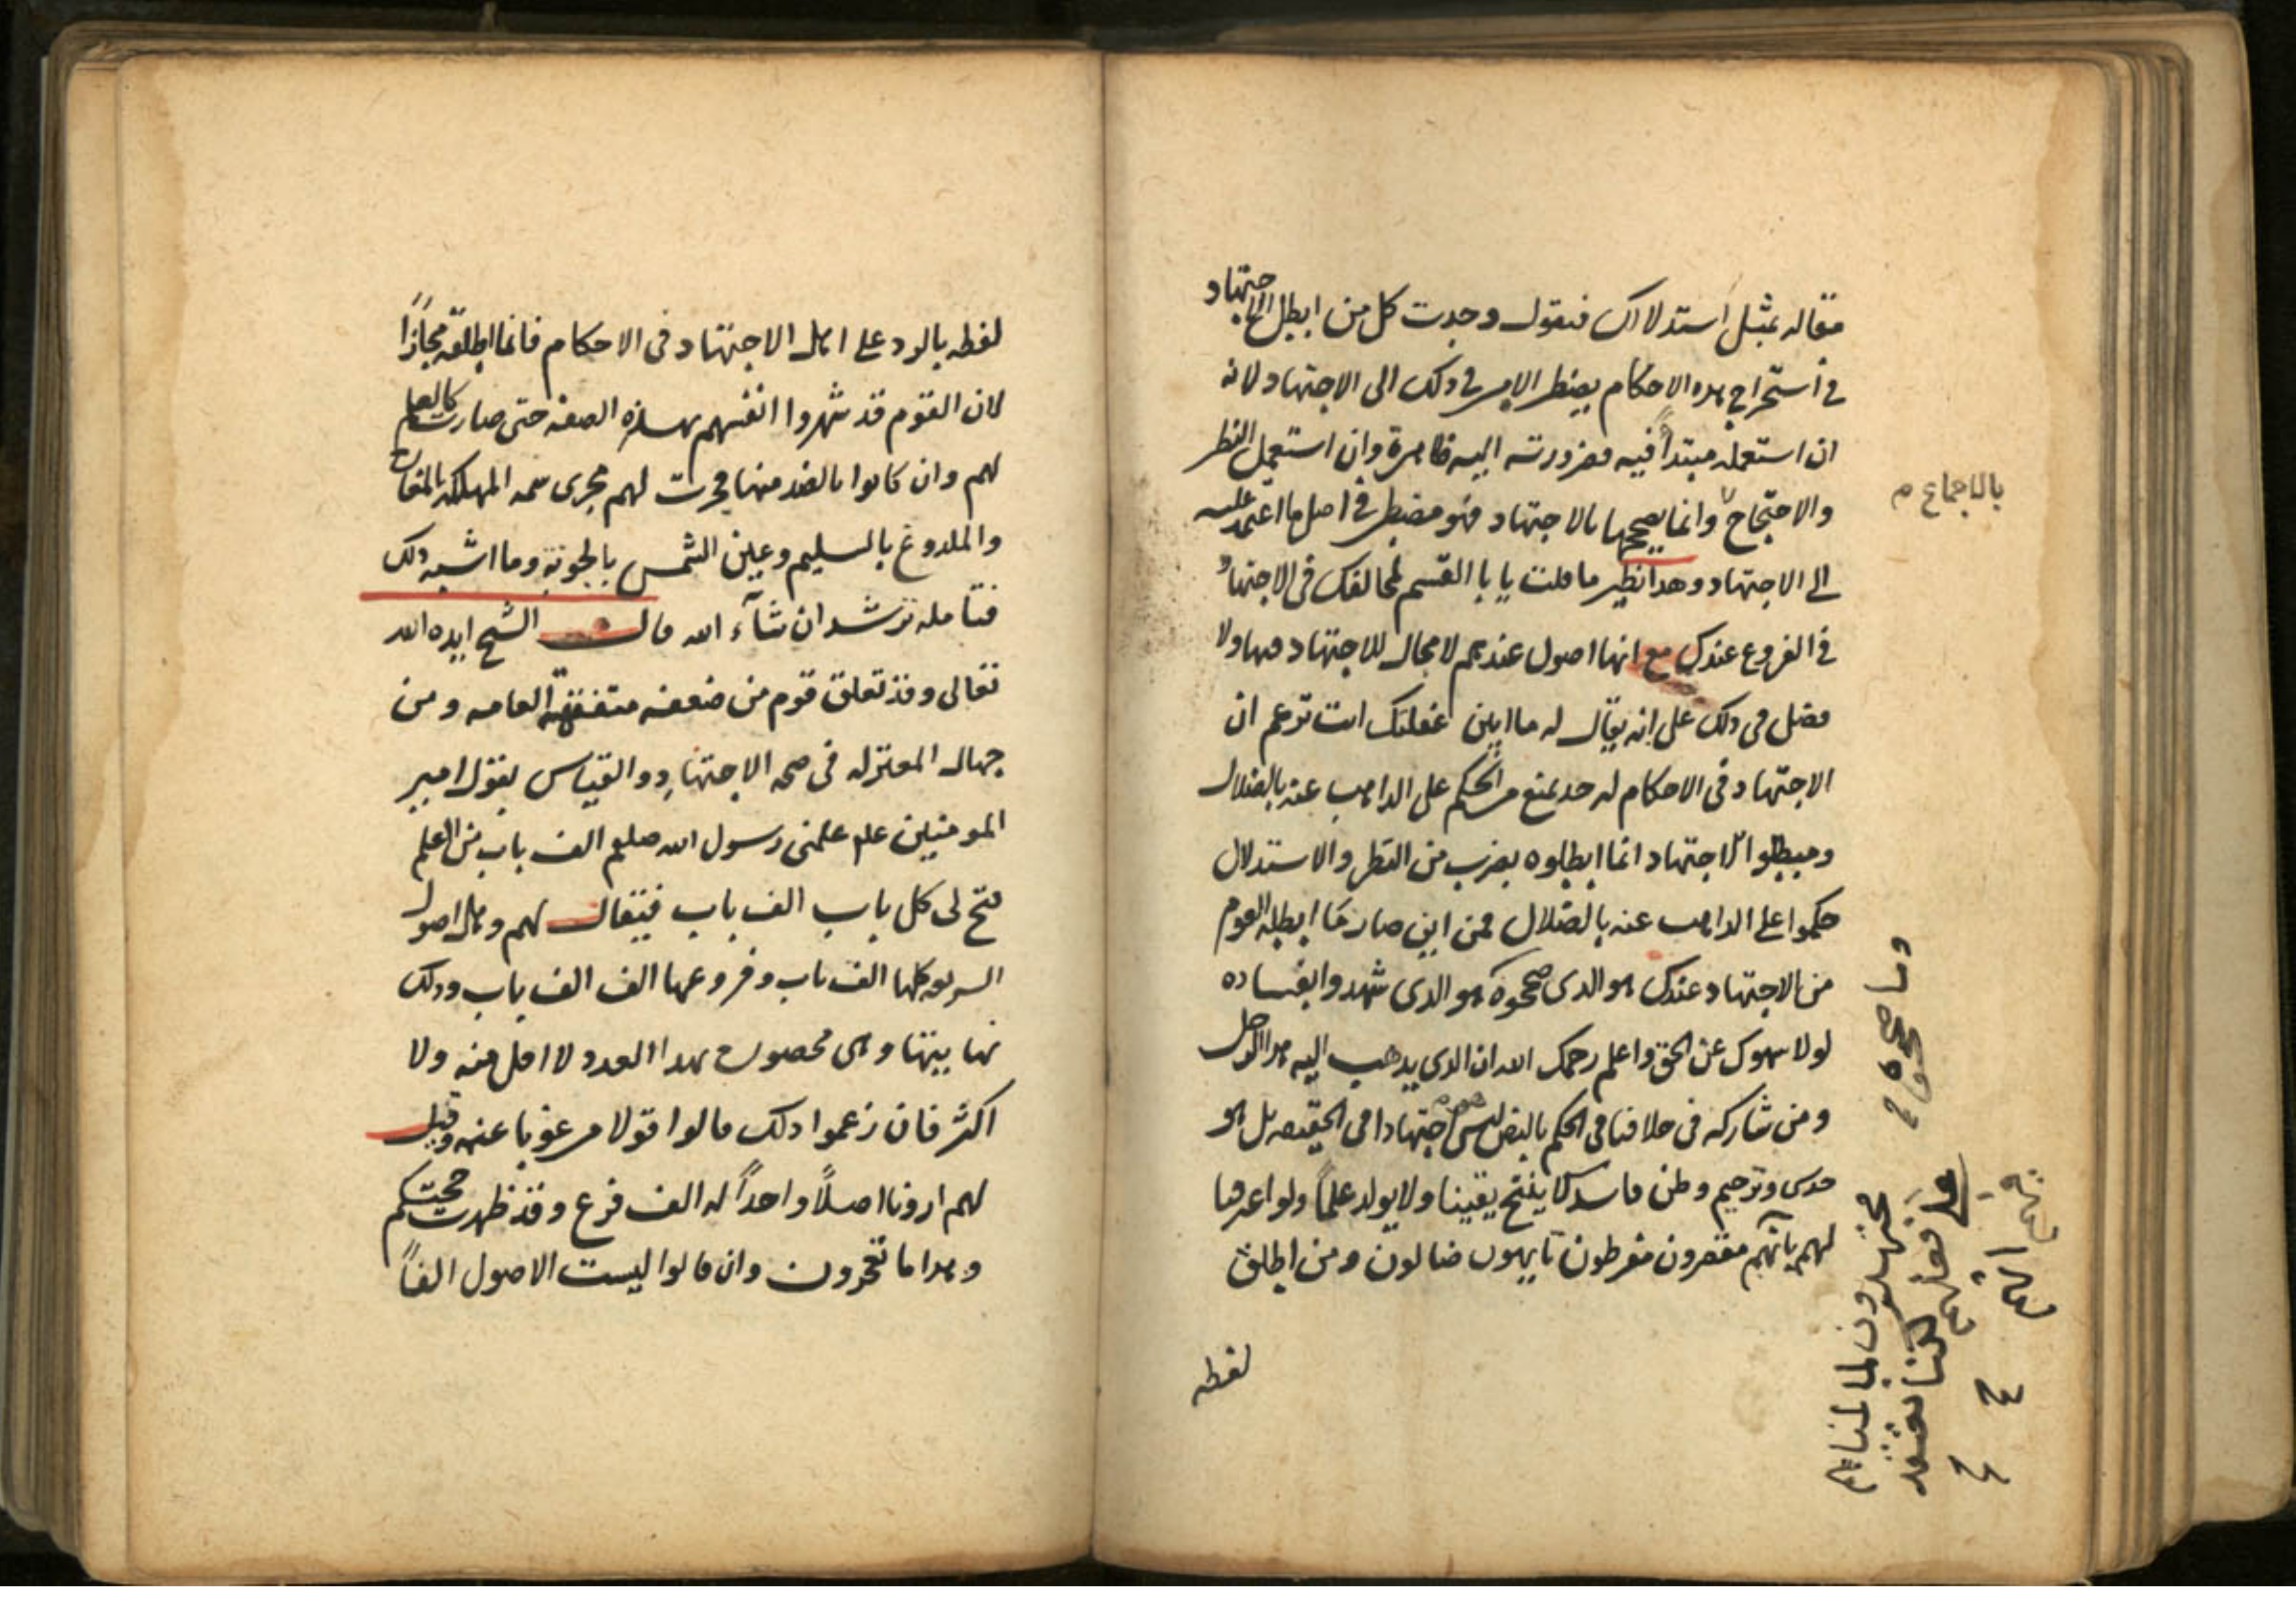 مقاله بمثل استدلالك فنقول وجدت كل من ابطل الاجتهاد
في استخراج هذه الاحكام يضطر الامر في ذلك الى الاجتهاد لانه
ان استعمله مبتدأ فيه فضرورته اليه ظاهرة وان استعمل النظر
والاحتجاج وانما يصححها بالاجتهاد فهو مضطر في اصل ما اعتمد عليه
الى الاجتهاد وهذا نظير ما قلت يا با القسم لمخالفك في الاجتهاد
في الفروع عندك مع انها اصول عندهم لا مجال للاجتهاد فيها ولا
فصل في ذلك على انه يقال له ما ابين غفلتك انت تزعم ان
الاجتهاد في الاحكام له حد يمنع من الحكم على الذاهب عنه بالضلال
ومبطلوا الاجتهاد انما ابطلوه بضرب من النظر والاستدلال
حكموا على الذاهب عنه بالضلال فمن اين صار ما ابطله القوم
من الاجتهاد عندك هو الذى صححوه هو الذى شهدوا بفساده
لولا سهوك عن الحق واعلم رحمك الله ان الذى يذهب اليه هذا الرجل
ومن شاركه فى خلافنا فى الحكم بالنص ليس اجتهادا فى الحقيقه بل هو
حدس وترجيم وظن فاسد لا ينتج يقينا ولا يولد علماً ولو اعترفنا
لهم بانهم مقصرون مفرطون تايهون ضالون ومن اطلق
لفظه
بالاجماع م
وما صححوه
مجتهدون لما لمناهم
على فعلهم لكنا نعتقد
فيهم انهم
لفظه بالرد على اهل الاجتهاد فى الاحكام فانما اطلقه مجازاً
لان القوم قد شهروا انفسهم بهذه الصفه حتى صارت كالعلم
لهم وان كانوا بالضد منها فجرت لهم مجرى سمه المهلكه بالمفازة
والملدوغ بالسليم وعين الشمس بالجونة وما اشبه ذلك
فتأمله ترشد ان شآء الله قال الشيخ ايده الله
تعالى وقد تعلق قوم من ضعفه متفقهة العامه ومن
جهال المعتزله فى صحه الاجتهاد والقياس بقول امير
المومنين علم علمنى رسول الله صلعم الف باب من العلم
فتح لى كل باب الف باب فيقال لهم وهل اصول
الشريعه كلها الف باب وفروعها الف الف باب وذلك
نهايتها وهى محصوره بهذا العدد لا اقل منه ولا
اكثر فان زعموا ذلك قالوا قولا مرغوبا عنه وقيل
لهم ارونا اصلاً واحداً له الف فرع وقد ظهرت حجتكم
وهذا ما تعجزون وان قالوا ليست الاصول الفاً